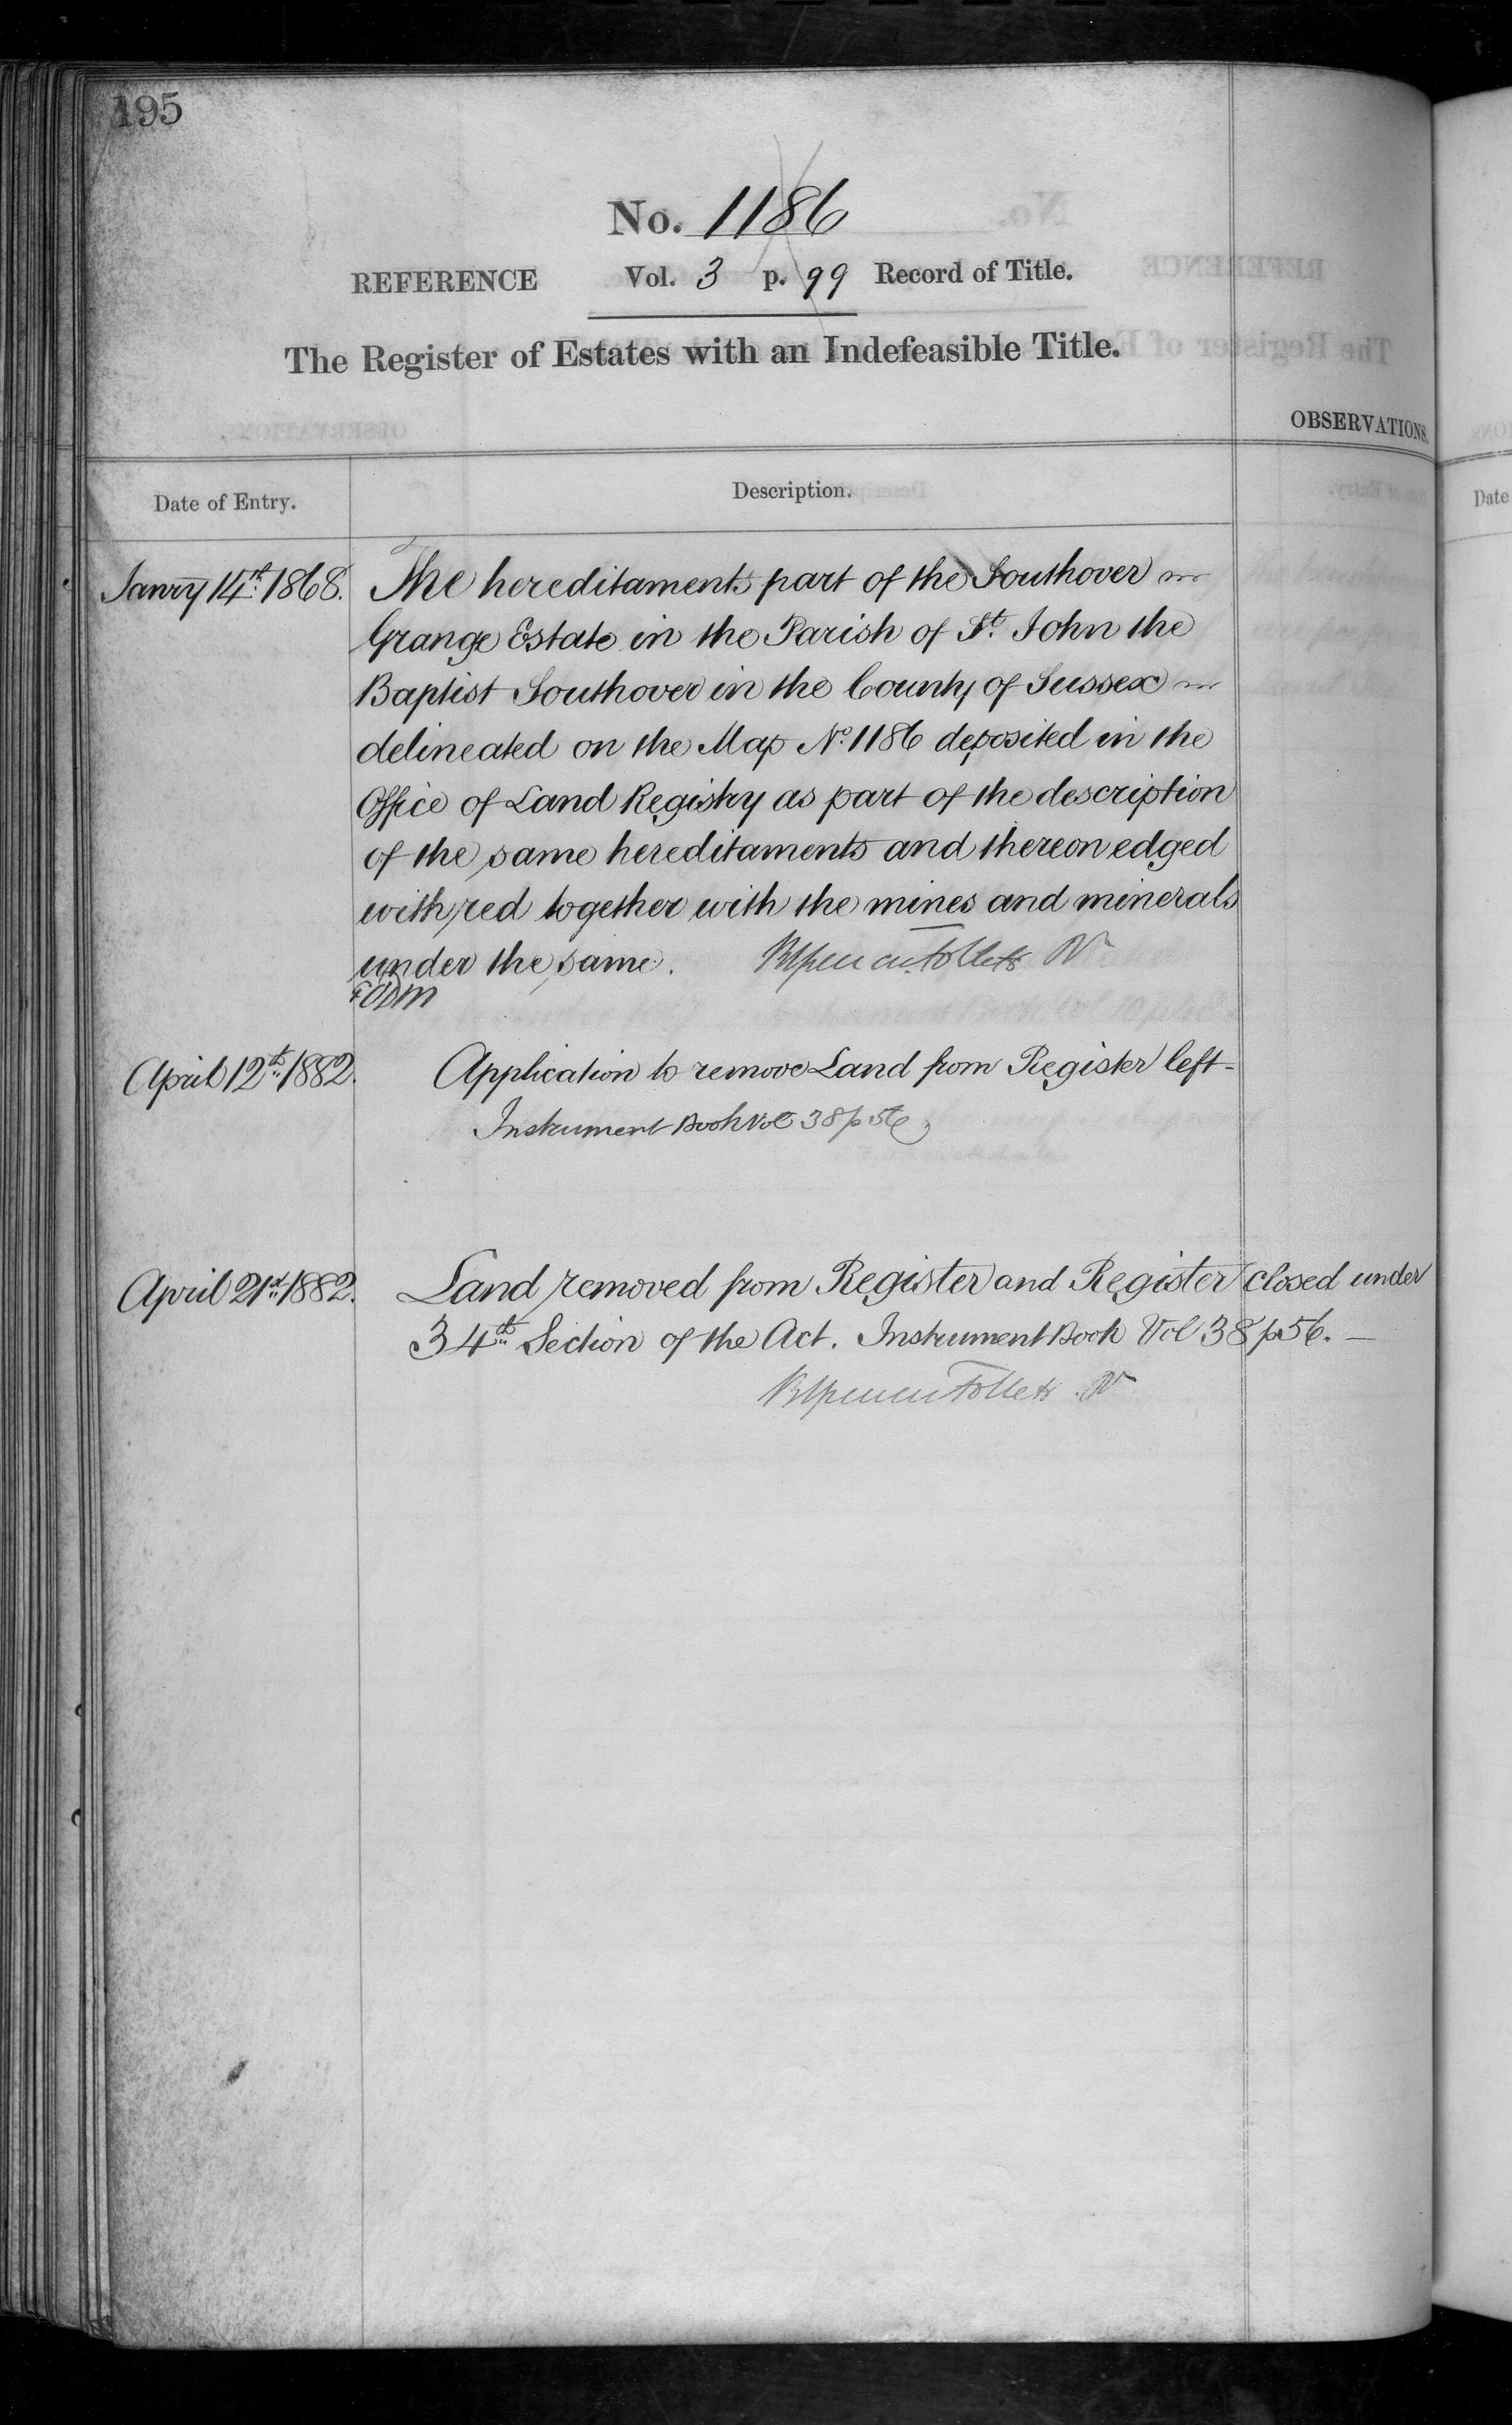 195
No. 1186
REFERENCE Vol. 3 p. 99 Record of Title.
The Register of Estates with an Indefeasible Title.
OBSERVATIONS.
Date of Entry. Description.
Janry 14th 1868. The hereditaments part of the Southover
Grange Estate in the Parish of St. John the
Baptist Southover in the County of Sussex
delineated on the Map No. 1186 deposited in the
Office of Land Registry as part of the description
of the same hereditaments and thereon edged
with red together with the mines and minerals
under the same. Follett
April 12th 1882. Application to remove Land from Register left
Instrument Book Vol 38 p 56
April 21st 1882. Land removed from Register and Register closed under
34th Section of the Act. Instrument Book Vol 38 p 56. —
Follett
Date